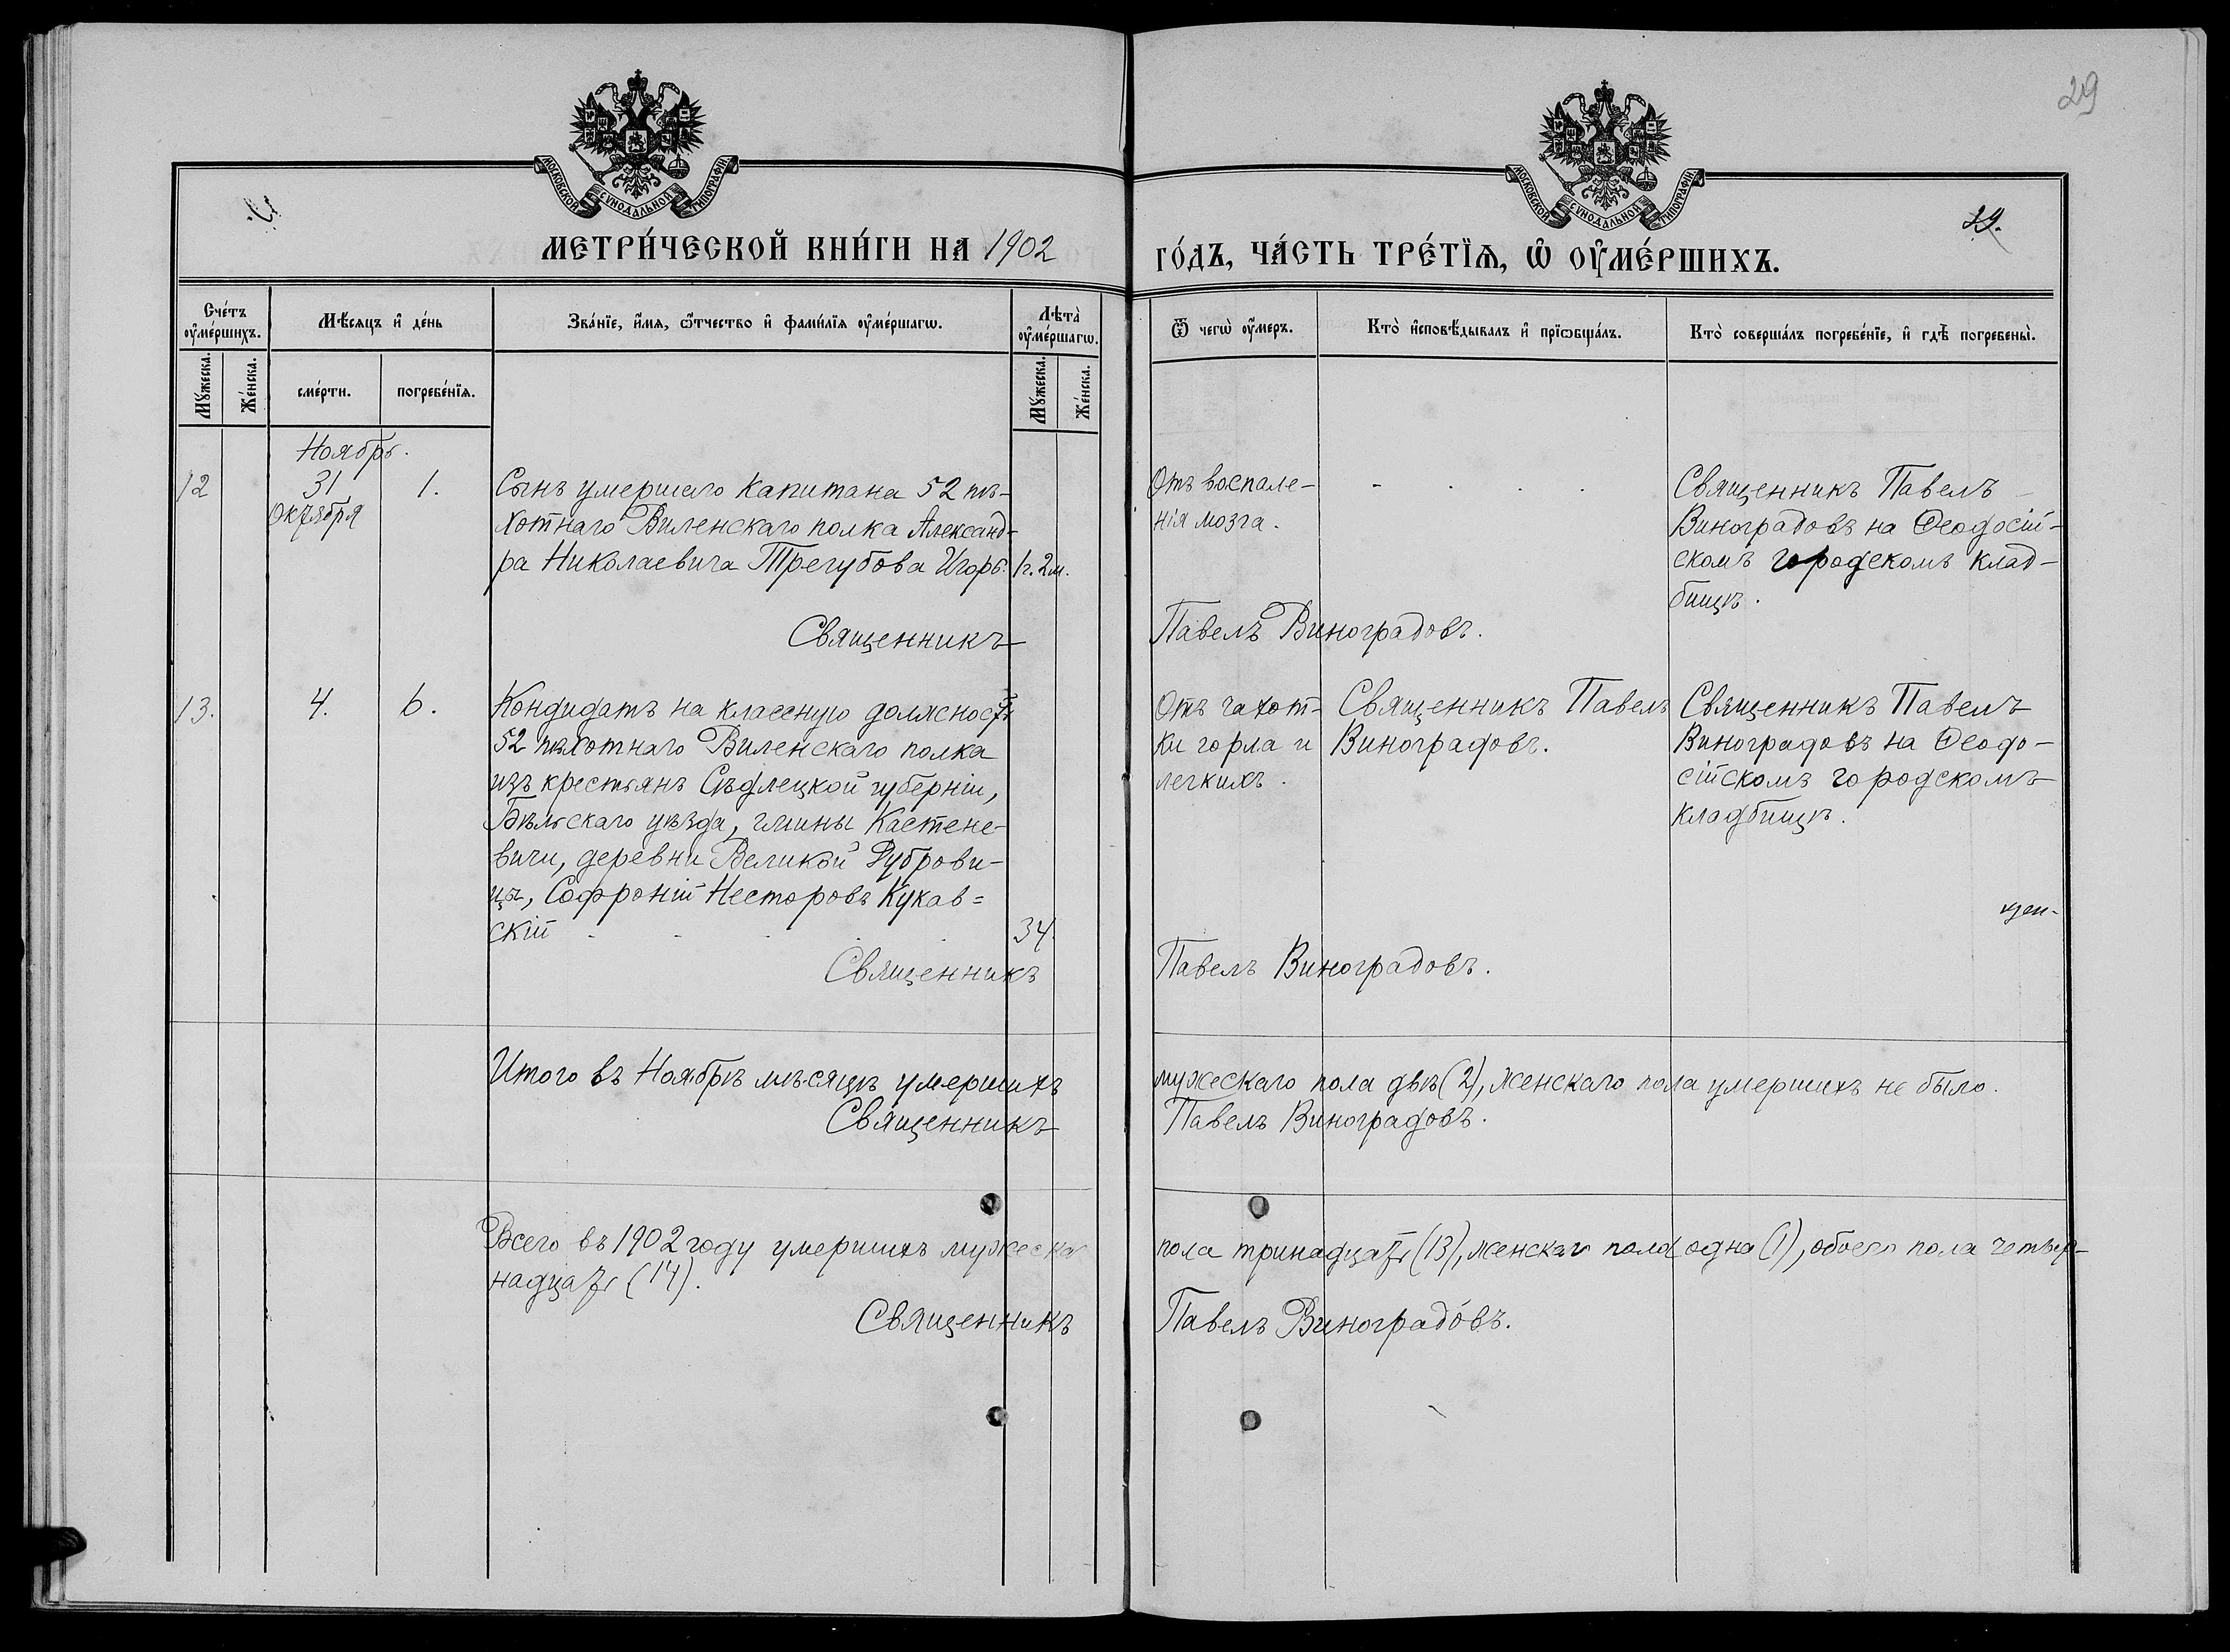 29
МОСКОВСКОЙ СѴНОДАЛЬНОЙ ТИПОГРАФІИ
МОСКОВСКОЙ СѴНОДАЛЬНОЙ ТИПОГРАФІИ
29.
МЕТРИ́ЧЕСКОЙ КНИ́ГИ НА 1902
ГО́ДЪ, ЧА́СТЬ ТРЕ́ТЇѦ, Ѡ҆ ОУ҆МЕ́РШИХЪ.
Сче́тъ оу҆ме́ршихъ.
Мѣ́сяцъ и҆ де́нь
Зва́нїе, и҆́мя, ѻ҆́тчество и҆ фами́лїя оу҆ме́ршагѡ.
Лѣ́та оу҆ме́ршагѡ.
Ѿ чегѡ̀ оу҆́меръ.
Кто̀ и҆сповѣ́дывалъ и҆ прїѡбща́лъ.
Кто̀ соверша́лъ погребе́нїе, и҆ гдѣ̀ погребены̀.
Мꙋ́жеска.
Же́нска.
сме́рти.
погребе́нїя.
Мꙋ́жеска.
Же́нска.
Ноябрь.
12
31
Октября
1.
Сынъ умершаго Капитана 52 пѣ-
хотнаго Виленскаго полка Александ-
ра Николаевича Трегубова Игорь.
1г. 2м.
Отъ воспале-
нія мозга.
Священникъ Павелъ
Виноградовъ на Ѳеодосій-
скомъ городскомъ клад-
бищѣ.
Священникъ
Павелъ Виноградовъ.
13.
4.
6.
Кондидатъ на классную должность
52 пѣхотнаго Виленскаго полка
изъ крестьянъ Сѣдлецкой губерніи,
Бѣльскаго уѣзда, гмины Кастене-
вичи, деревни Великой Дуброви-
цы, Софроній Несторовъ Кукав=
скій
34.
Отъ чахот-
ки горла и
легкихъ.
Священникъ Павелъ
Виноградовъ.
Священникъ Павелъ
Виноградовъ на Ѳеодо-
сійскомъ городскомъ
кладбищѣ.
Священникъ
Павелъ Виноградовъ.
Итого въ Ноябрѣ мѣсяцѣ умершихъ
мужескаго пола двѣ (2), женскаго пола умершихъ не было.
Священникъ
Павелъ Виноградовъ.
Всего въ 1902 году умершихъ мужеска
пола тринадцать (13), женскаго пола одна (1), обоего пола четыр-
надцать (14).
Священникъ
Павелъ Виноградовъ.